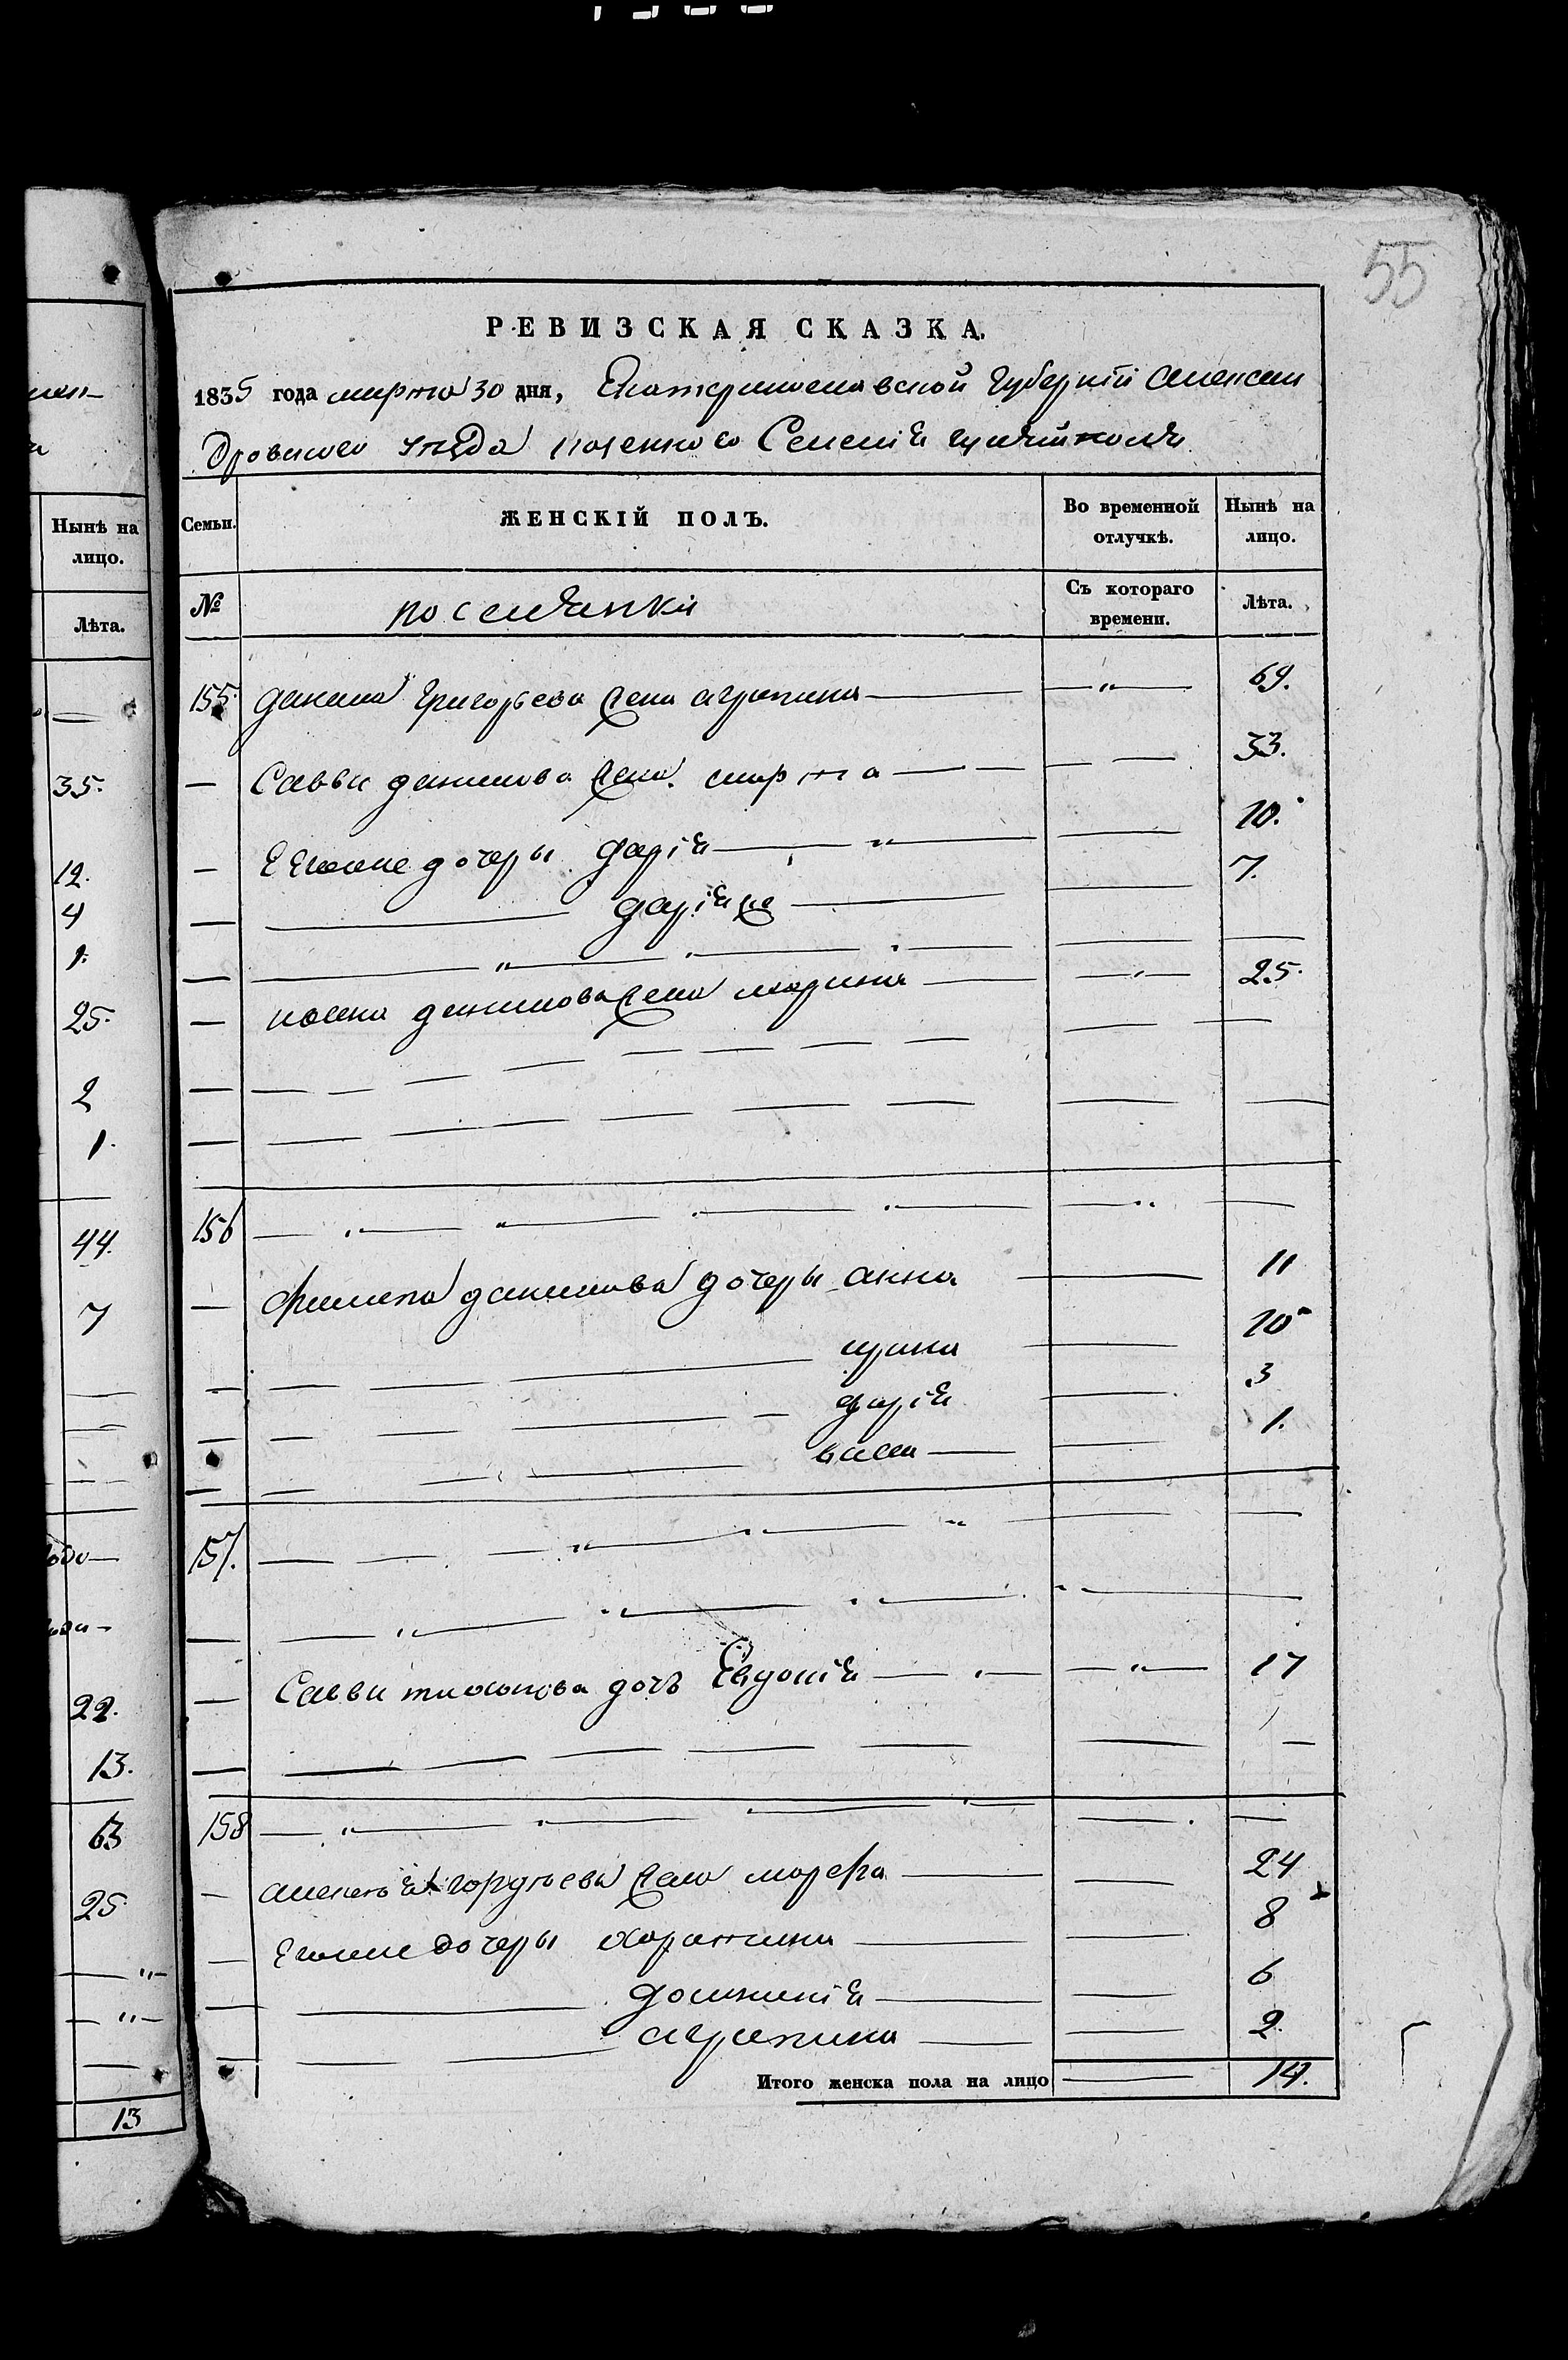 55
РЕВИЗСКАЯ СКАЗКА.
1835 года марта 30 дня, Екатеринославской Губернiи Алексан
дровского уѣзда казенного Селенiя гуляйполя
Семьи.
ЖЕНСКІЙ ПОЛЪ.
Во временной отлучкѣ.
Нынѣ на лицо.
№
поселянки
Съ котораго времени.
Лѣта.
155. данила Григорьева жена агрипина — " — 69.
— Саввы данилова жена марта — — 33.
— Его же дочеры дарiя — " — 10.
— дарiя же — 7.
— " —
— данилова жена марина — " — 25.
156 — " —
— филипа данилова дочеры анна — 11
— ирина — 10
— дарiя — 3
— васса — 1.
157. — " —
— " —
— Саввы дочь Евдокiя — " — 17
158 — " —
— алексѣя гордѣева жена марфа — 24
— Его же дочеры харитина — 8
— домникiя — 6
— агрипина — 2
Итого женска пола на лицо — 14.
Нынѣ на лицо.
Лѣта.
35.
12.
4
1.
25.
2
1.
44.
7
22.
13.
63
25
13